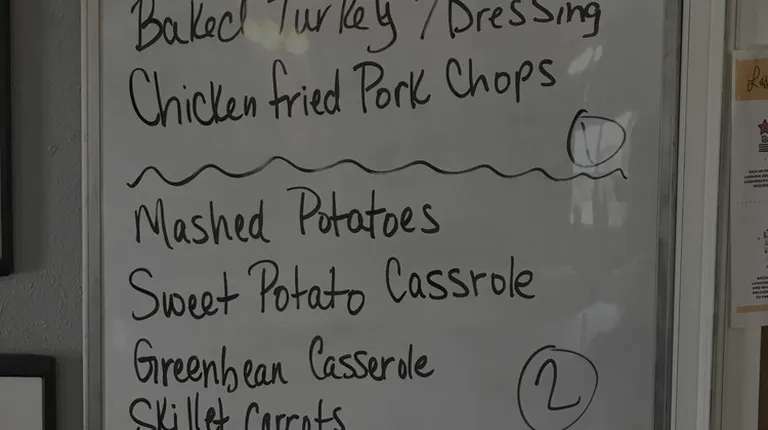 Baked Turkey / Dressing
Chicken fried Pork Chops
1
Mashed Potatoes
Sweet Potato Cassrole
Greenbean Casserole
2
Skillet Carrots